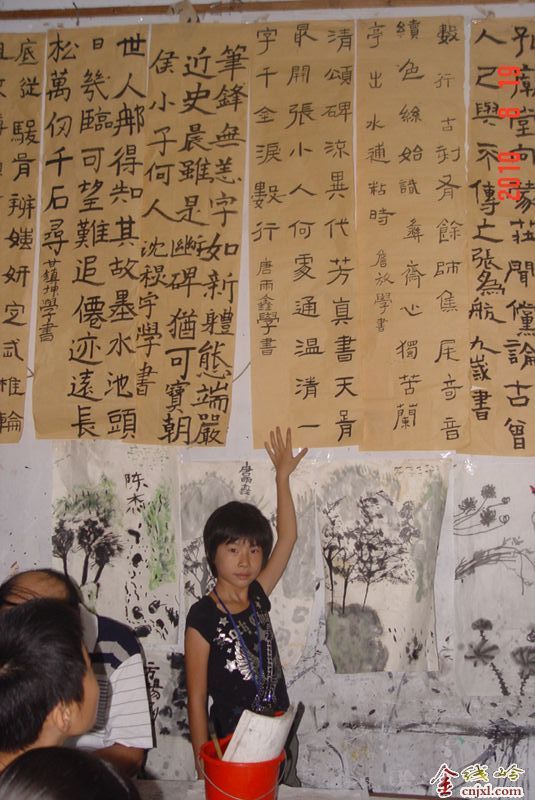 孔廟堂向豫莊聞儻論古曾
人已與不傳亡 張為航九歲書
數行古刻有餘師焦尾奇音
續色絲始識彝齋心獨苦蘭
亭出水逋粘時 詹放學書
清頌碑涼異代芳真書天骨
最開張小人何處通溫清一
字千金淚數行 唐雨鑫學書
筆鋒無恙字如新體態端嚴
近史晨雖是斷碑猶可寶朝
侯小子何人 沈祾宇學書
世人那得知其故墨水池頭
日幾臨可望難追僊迹遠長
松萬仞千石尋 甘鎮坤學書
底從駿骨辨媸妍定武椎輪
2010 8 19
陈杰
唐雨鑫
金线岭
cnjxl.com